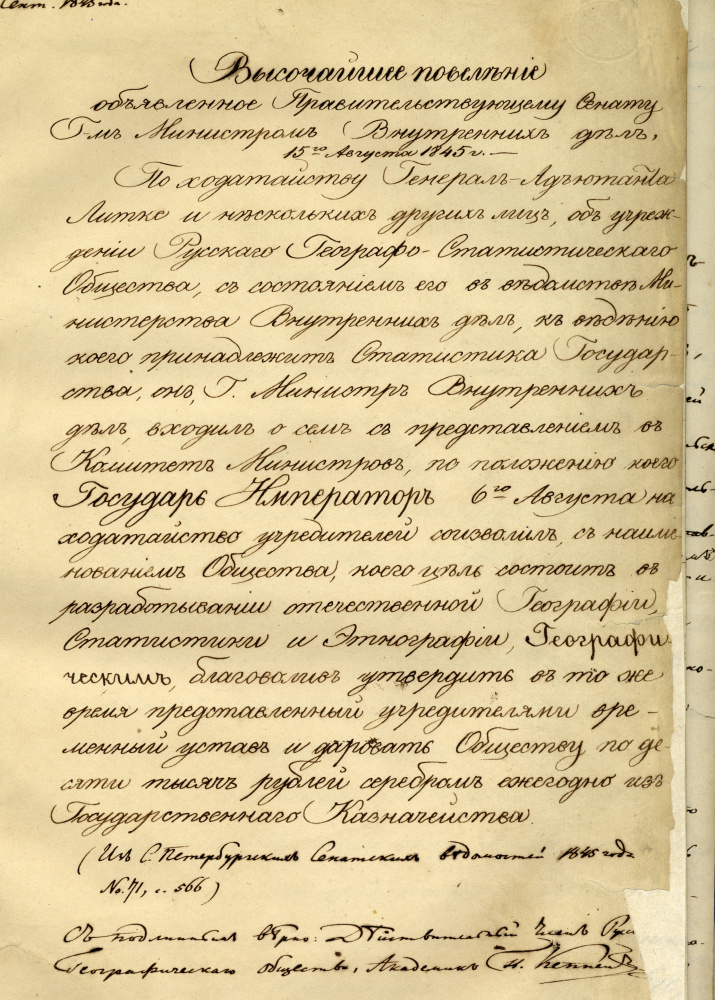 Сент. 1845 года.
Высочайшее повелѣніе
объявленное Правительствующему Сенату
Г-мъ Министромъ Внутреннихъ дѣлъ,
15го Августа 1845 г. —
По ходатайству Генералъ-Адъютанта
Литке и нѣсколькихъ другихъ лицъ, объ учреж-
деніи Русскаго Географо-Статистическаго
Общества, съ состояніемъ его въ вѣдомствѣ Ми-
нистерства Внутреннихъ дѣлъ, къ вѣдѣнію
коего принадлежитъ Статистика Государ-
ства, онъ, Г. Министръ Внутреннихъ
дѣлъ, входилъ о семъ съ представленіемъ въ
Комитетъ Министровъ, по положенію коего
Государь Императоръ 6го Августа на
ходатайство учредителей соизволилъ, съ наиме-
нованіемъ Общества, коего цѣль состоитъ въ
разработываніи отечественной Географіи,
Статистики и Этнографіи, Географи-
ческимъ, благоволивъ утвердить въ то же
время представленный учредителями вре-
менный уставъ и даровать Обществу по де-
сяти тысячъ рублей серебромъ ежегодно изъ
Государственнаго Казначейства.
(Изъ С. Петербургскихъ Сенатскихъ вѣдомостей 1845 года
No. 71, с. 566)
Съ подлиннымъ вѣрно: Дѣйствительный Членъ Рус.
Географическаго общества, Академикъ П. Кеппенъ